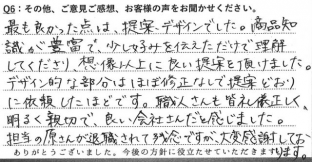 Q6：その他、ご意見ご感想、お客様の声をお聞かせください。
最も良かった点は、提案・デザインでした。商品知
識が豊富で、少しのヒントを伝えただけで理解
してくださり、想像以上に良い提案を頂けました。
デザイン的な部分はほぼ修正なしで提案どおり
に依頼したほどです。職人さんも皆礼儀正しく、
明るく親切で、良い会社さんだと感じました。
担当の原さんが退職されて残念ですが、大変感謝してお
ります。
ありがとうございました。今後の方針に役立たせていただきます